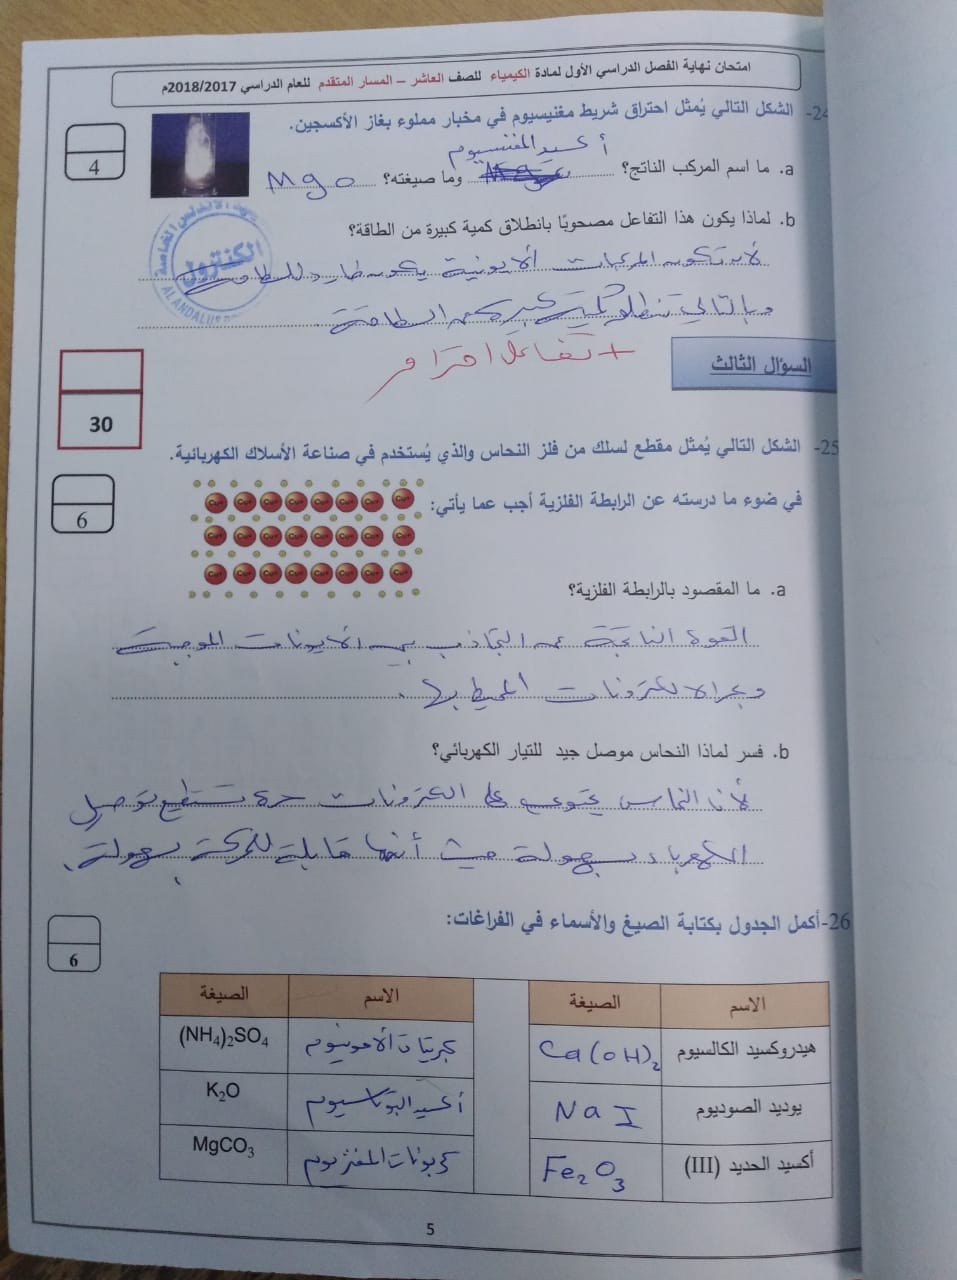 امتحان نهاية الفصل الدراسي الأول لمادة الكيمياء للصف العاشر – المسار المتقدم للعام الدراسي 2018/2017م
24- الشكل التالي يُمثل احتراق شريط مغنيسيوم في مخبار مملوء بغاز الأكسجين.
4
أكسيد المغنسيوم
a. ما اسم المركب الناتج؟ وما صيغته؟ MgO
b. لماذا يكون هذا التفاعل مصحوبًا بانطلاق كمية كبيرة من الطاقة؟
لأن تكون المركبات الأيونية يكون طارد للطاقة
وبالتالي تنطلق كمية كبيرة من الطاقة.
الكنترول
AL ANDALUS
+ تفاعل احتراق
السؤال الثالث
30
25- الشكل التالي يُمثل مقطع لسلك من فلز النحاس والذي يُستخدم في صناعة الأسلاك الكهربائية.
في ضوء ما درسته عن الرابطة الفلزية أجب عما يأتي:
6
a. ما المقصود بالرابطة الفلزية؟
القوة الناتجة عن التجاذب بين الأيونات الموجبة
وبحر الالكترونات المحيط بها.
b. فسر لماذا النحاس موصل جيد للتيار الكهربائي؟
لأن النحاس يحتوي على الكترونات حرة تستطيع توصيل
الكهرباء بسهولة حيث أنها قابلة للحركة بسهولة.
26-أكمل الجدول بكتابة الصيغ والأسماء في الفراغات:
6
الاسم الصيغة الاسم الصيغة
هيدروكسيد الكالسيوم Ca(OH)₂ كبريتات الأمونيوم (NH₄)₂SO₄
يوديد الصوديوم NaI أكسيد البوتاسيوم K₂O
أكسيد الحديد (III) Fe₂O₃ كربونات المغنزيوم MgCO₃
5